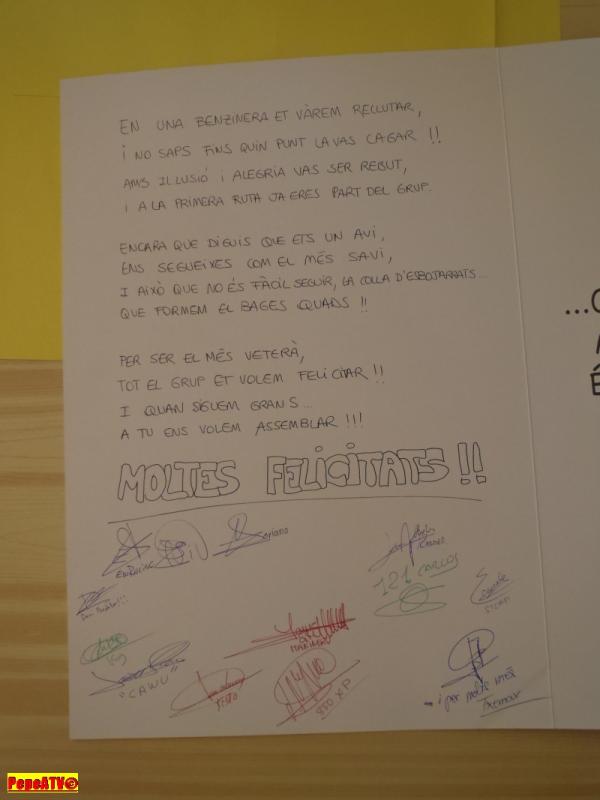 EN UNA BENZINERA ET VÀREM RECLUTAR,
i NO SAPS FINS QUIN PUNT LA VAS CAGAR !!
AMB IL·LUSIÓ i ALEGRIA VAS SER REBUT,
i A LA PRIMERA RUTA JA ERES PART DEL GRUP.
ENCARA QUE DIGUIS QUE ETS UN AVI,
ENS SEGUEIXES COM EL MÉS SAVI,
I AIXÒ QUE NO ÉS FÀCIL SEGUIR, LA COLLA D'ESBOJARRATS...
QUE FORMEM EL BAGES QUADS !!
PER SER EL MÉS VETERÀ,
TOT EL GRUP ET VOLEM FELICITAR !!
I QUAN SIGUEM GRANS...
A TU ENS VOLEM ASSEMBLAR !!!
MOLTES FELICITATS !!
121 CARLOS
"CAWU"
850 XP
i per molts més
Txemour
...
É
PepeATV©